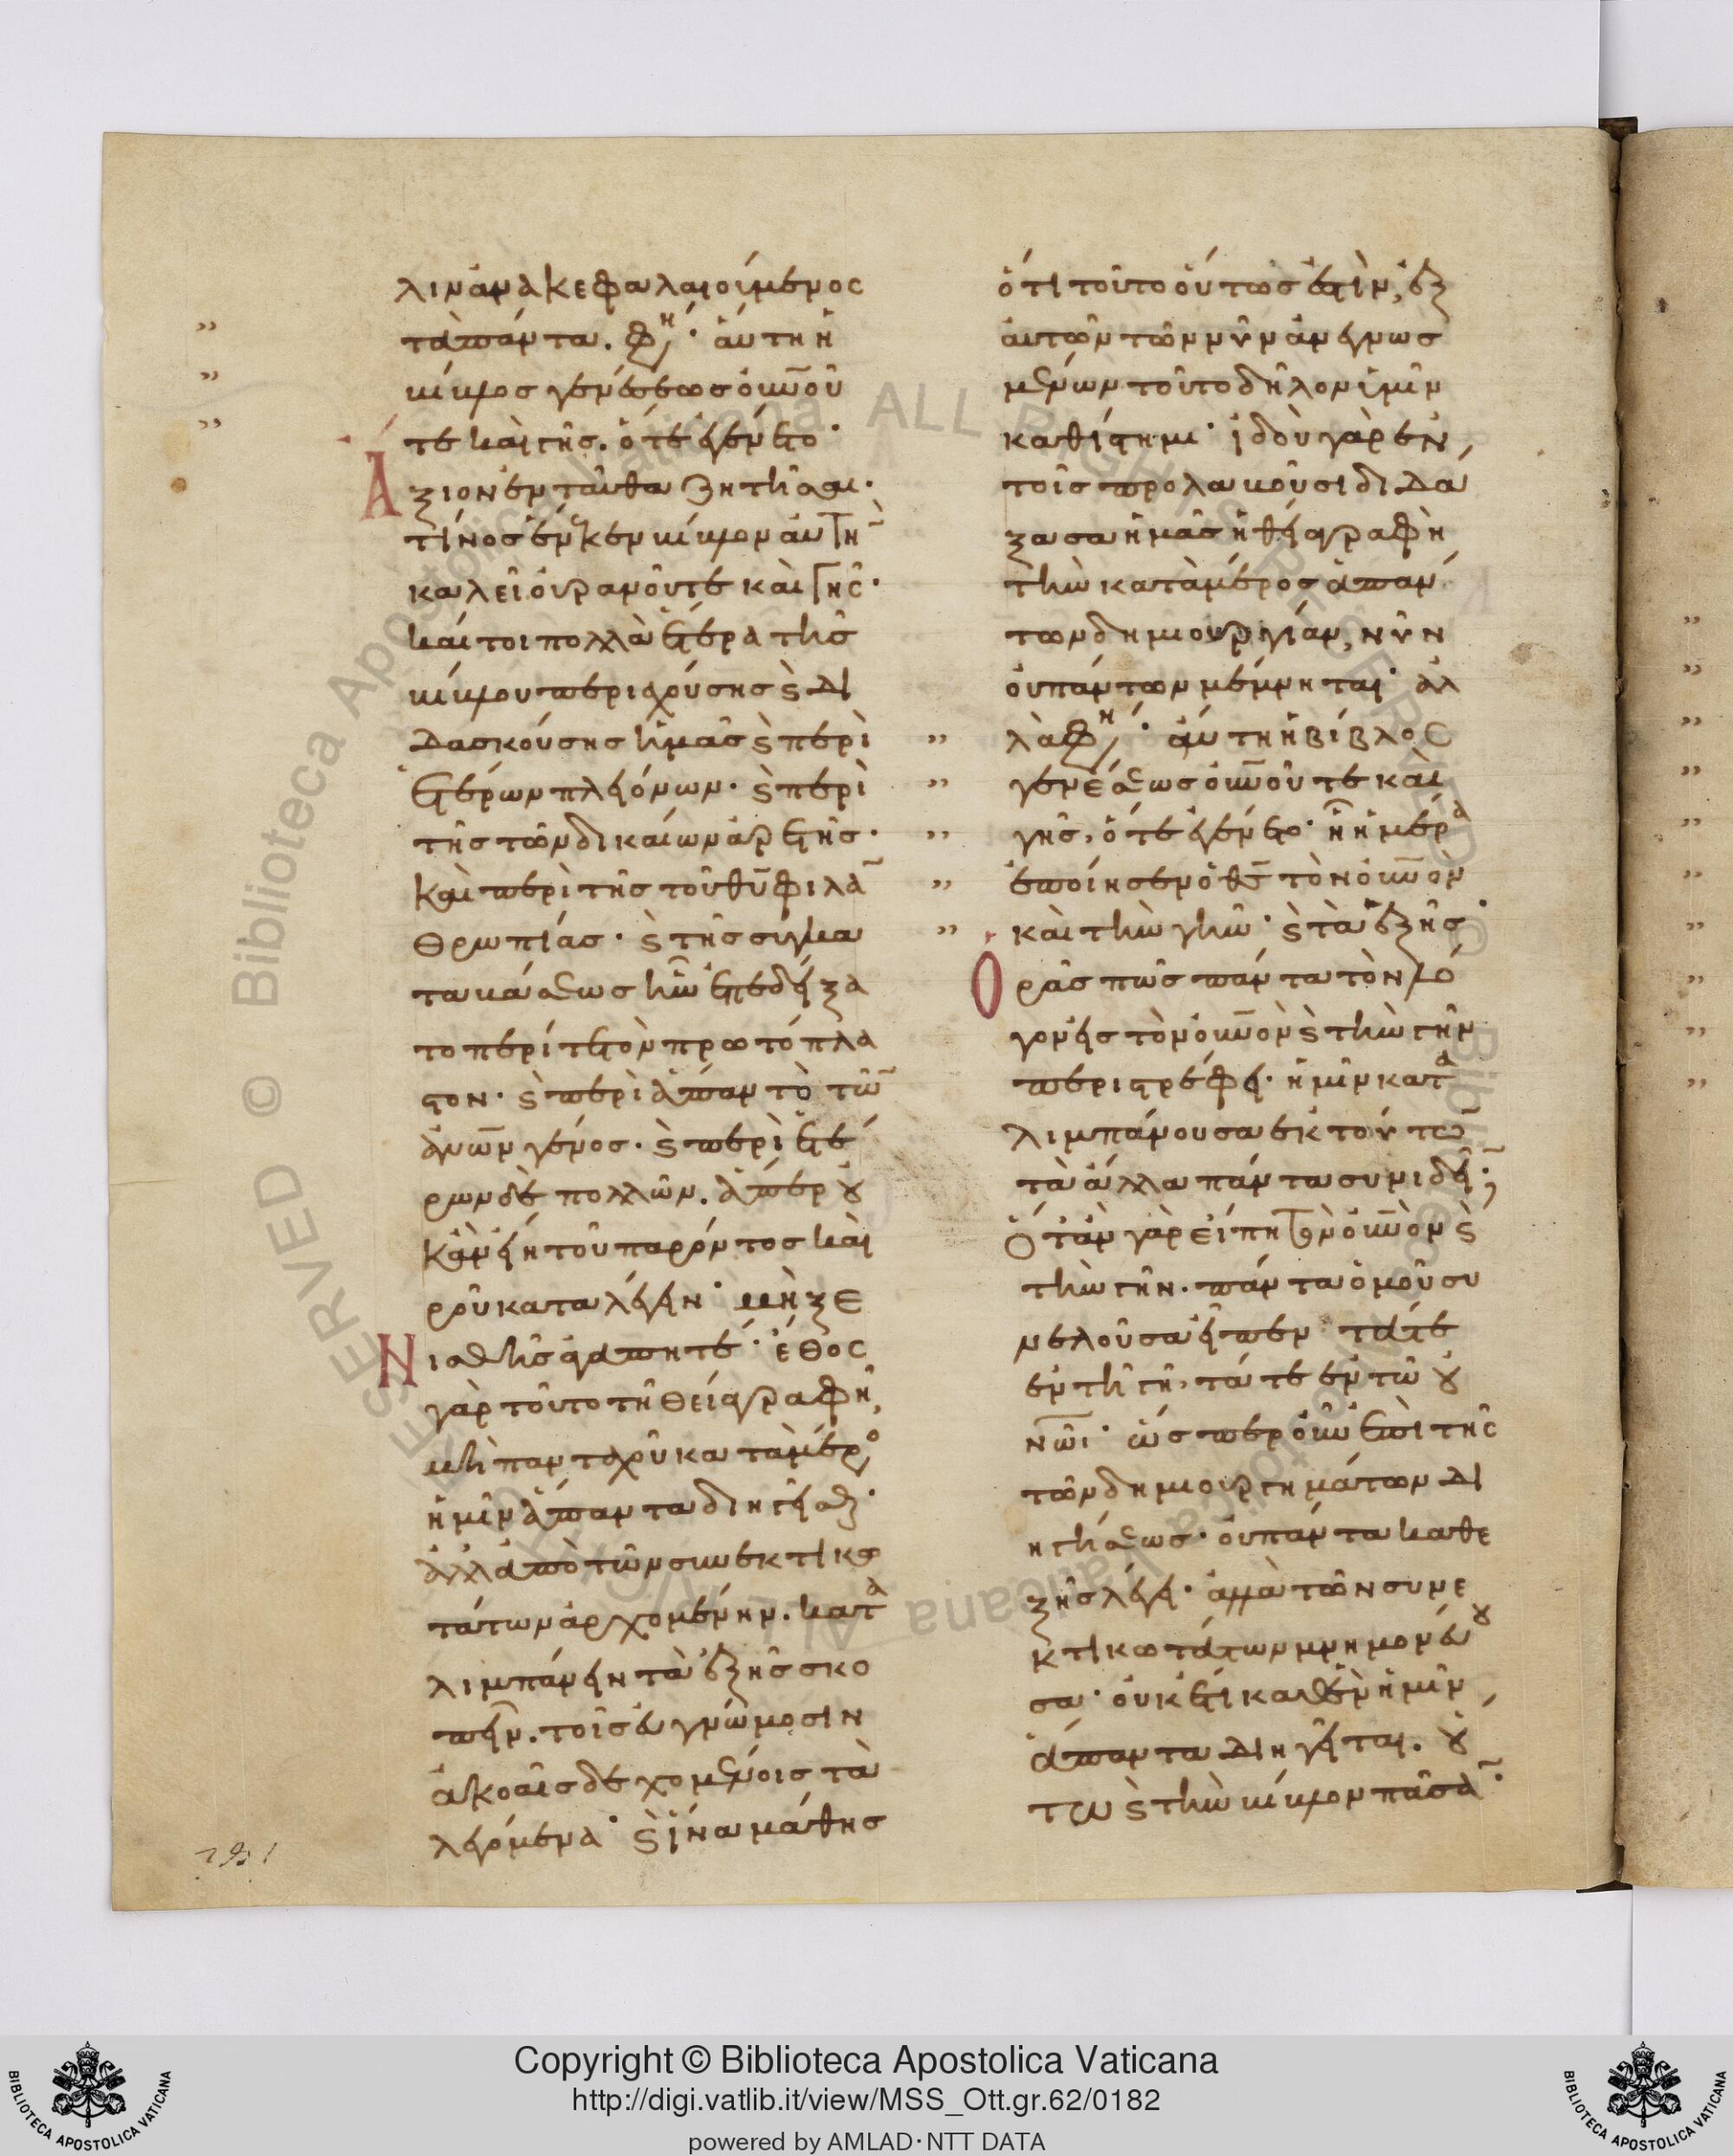 λιν ἀνακεφαλαιούμενος
τὰ πάντα. φη´· αὕτη ἡ
βίβλος γενέσεως οὐνοῦ
τε καὶ γῆς. ὅτε ἐγένετο·
Ἄξιον ἐνταῦθα ζητῆσαι·
τίνος ἕνεκεν βίβλον αὐτὴ
καλεῖ οὐρανοῦ τε καὶ γῆς·
καίτοι πολλὰ ἕτερα τῆς
βίβλου περιεχούσης ϗ δι
δασκούσης ἡμᾶς ϗ περὶ
ἑτέρων πλειόνων· ϗ περὶ
τῆς τῶν δικαίων ἀρετῆς·
καὶ περὶ τῆς τοῦ θυ φιλα
θρωπίας· ϗ τῆς συγκα
ταβάσεως ἣν ἐπεδείξα
το περί τε τὸν πρωτόπλα
στον· ϗ περὶ ἅπαν τὸ τῶ
ἀνων γένος· ϗ περὶ ἑτέ
ρων δὲ πολλῶν. ἅπερ οὐ
κἂν εἴη τοῦ παρόντος και
ροῦ καταλέγειν· μὴ ξε
Νισθῇς ἀγαπητέ· ἔθος
γὰρ τοῦτο τῇ θείᾳ γραφῇ,
μὴ πανταχοῦ κατὰ μέρο
ἡμῖν ἅπαντα διηγεῖσθαι·
ἀλλ' ἀπὸ τῶν συνεκτικω
τάτων ἀρχομένην. κατα
λιμπάνειν τὰ ἑξῆς σκο
πεῖν. τοῖς εὐγνώμοσιν
ἀκοαῖς δεχομένοις τὰ
λεγόμενα· ϗ ἵνα μάθῃς
ὅτι τοῦτο οὕτως ἐστὶν, ἐξ
αὐτῶν τῶν νῦν ἀνεγνωσ
μένων τοῦτο δῆλον ὑμῖν
καθίστημι· ἰδοὺ γὰρ ἐν
τοῖς προλαβοῦσι διδά
ξασα ἡμᾶς ἡ θεία γραφὴ
τὴν κατὰ μέρος ἁπάν
των δημιουργίαν, νῦν
οὐ πάντων μέμνηται· ἀλ
λὰ φη´· αὕτη ἡ βίβλος
γενέσεως οὐνοῦ τε καὶ
γῆς, ὅτε ἐγένετο· ᾗ ἡμέρα
ἐποίησεν ὁ θς τὸν οὐνὸν
καὶ τὴν γῆν· ϗ τὰ ἑξῆς·
Ὁρᾷς πῶς πάντα τὸν λό
γον εἰς τὸν οὐνὸν ϗ τὴν γῆν
περιστρέφει· ἡμῖν κατα
λιμπάνουσα ἐκ τούτω
τὰ ἄλλα πάντα συνιδεῖ;
Ὅταν γὰρ εἴπῃ τὸν οὐνὸν ϗ
τὴν γῆν. πάντα ὁμοῦ συ
νελοῦσα εἶπεν τά τε
ἐν τῇ γῇ, τά τε ἐν τῷ οὐ
νῶι· ὥσπερ οὖν ἐπὶ τῆς
τῶν δημιουργημάτων δι
ηγήσεως· οὐ πάντα καθε
ξῆς λέγει· ἀλλὰ τῶν συνε
κτικωτάτων μνημονεύου
σα· οὐκέτι καθὲν ἡμῖν
ἅπαντα διηγεῖται. οὕ
τω ϗ τὴν βίβλον πᾶσα·
Copyright © Biblioteca Apostolica Vaticana
http://digi.vatlib.it/view/MSS_Ott.gr.62/0182
powered by AMLAD·NTT DATA